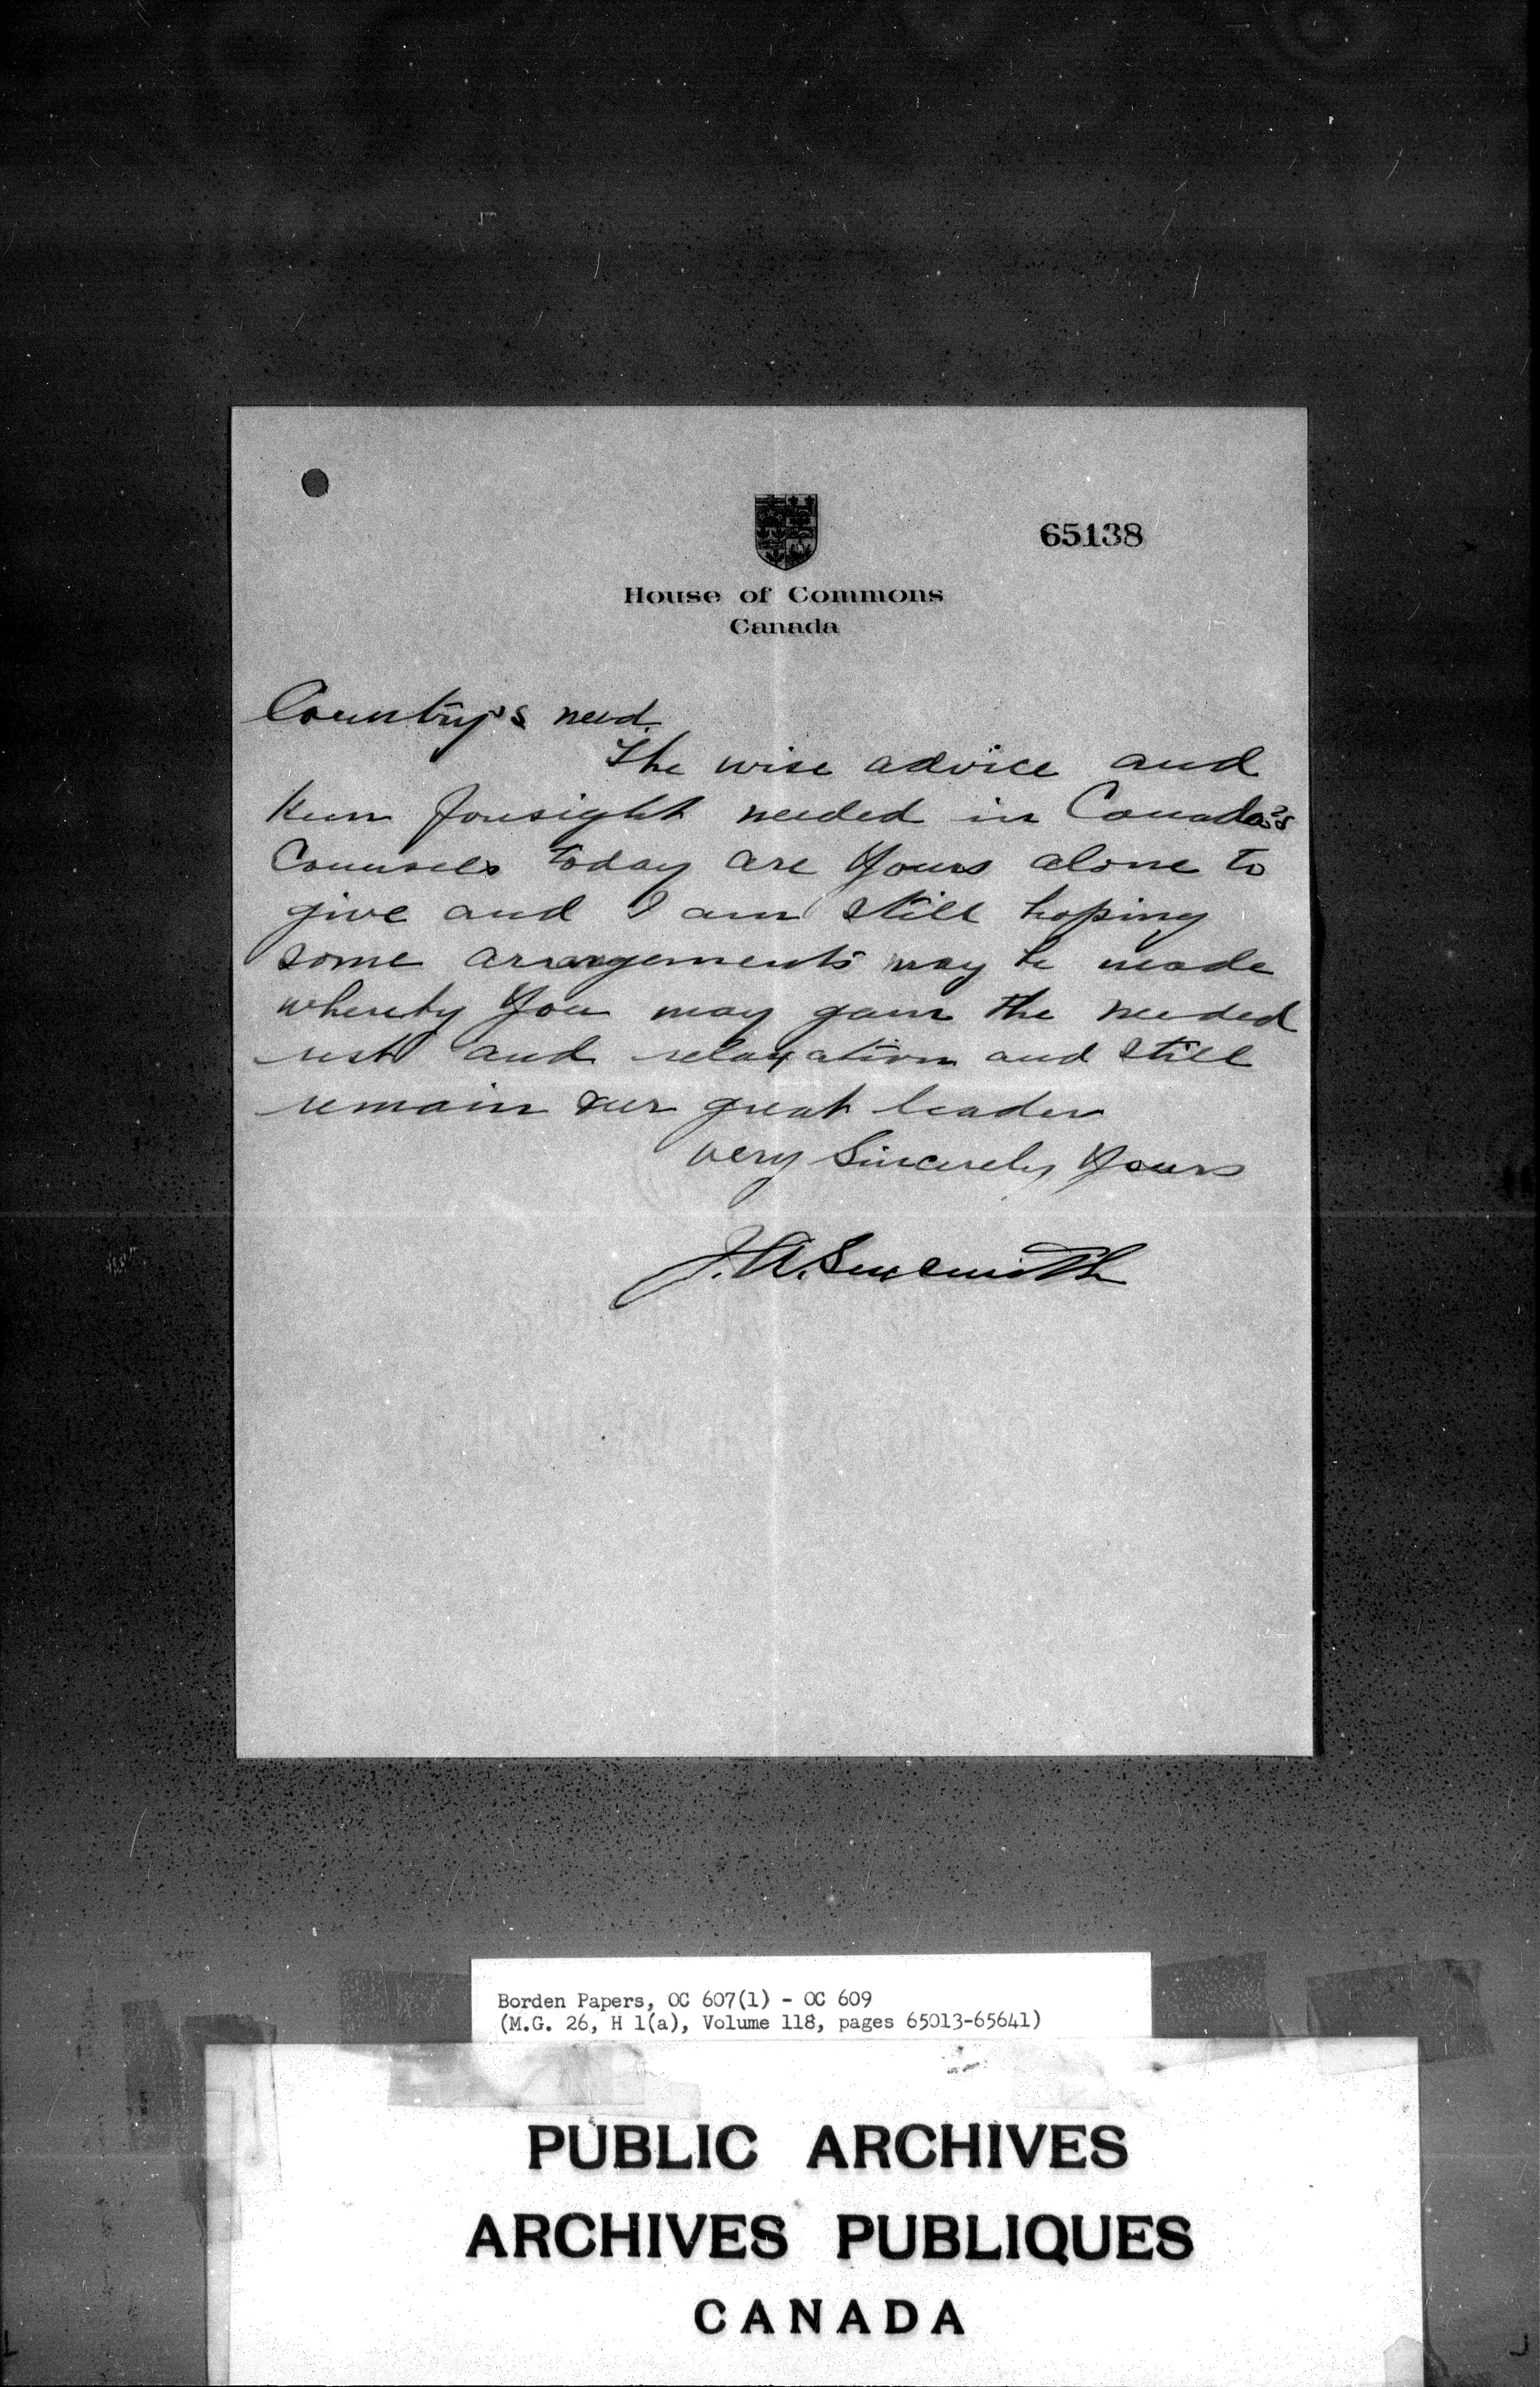 65138
House of Commons
Canada
Country's need.
The wise advice and
keen foresight needed in Canada's
Counsels today are yours alone to
give and I am still hoping
some arrangements may be made
whereby you may gain the needed
rest and relaxation and still
remain our great leader
Very Sincerely Yours
J. A. Sexsmith
Borden Papers, OC 607(1) - OC 609
(M.G. 26, H 1(a), Volume 118, pages 65013-65641)
PUBLIC ARCHIVES
ARCHIVES PUBLIQUES
CANADA